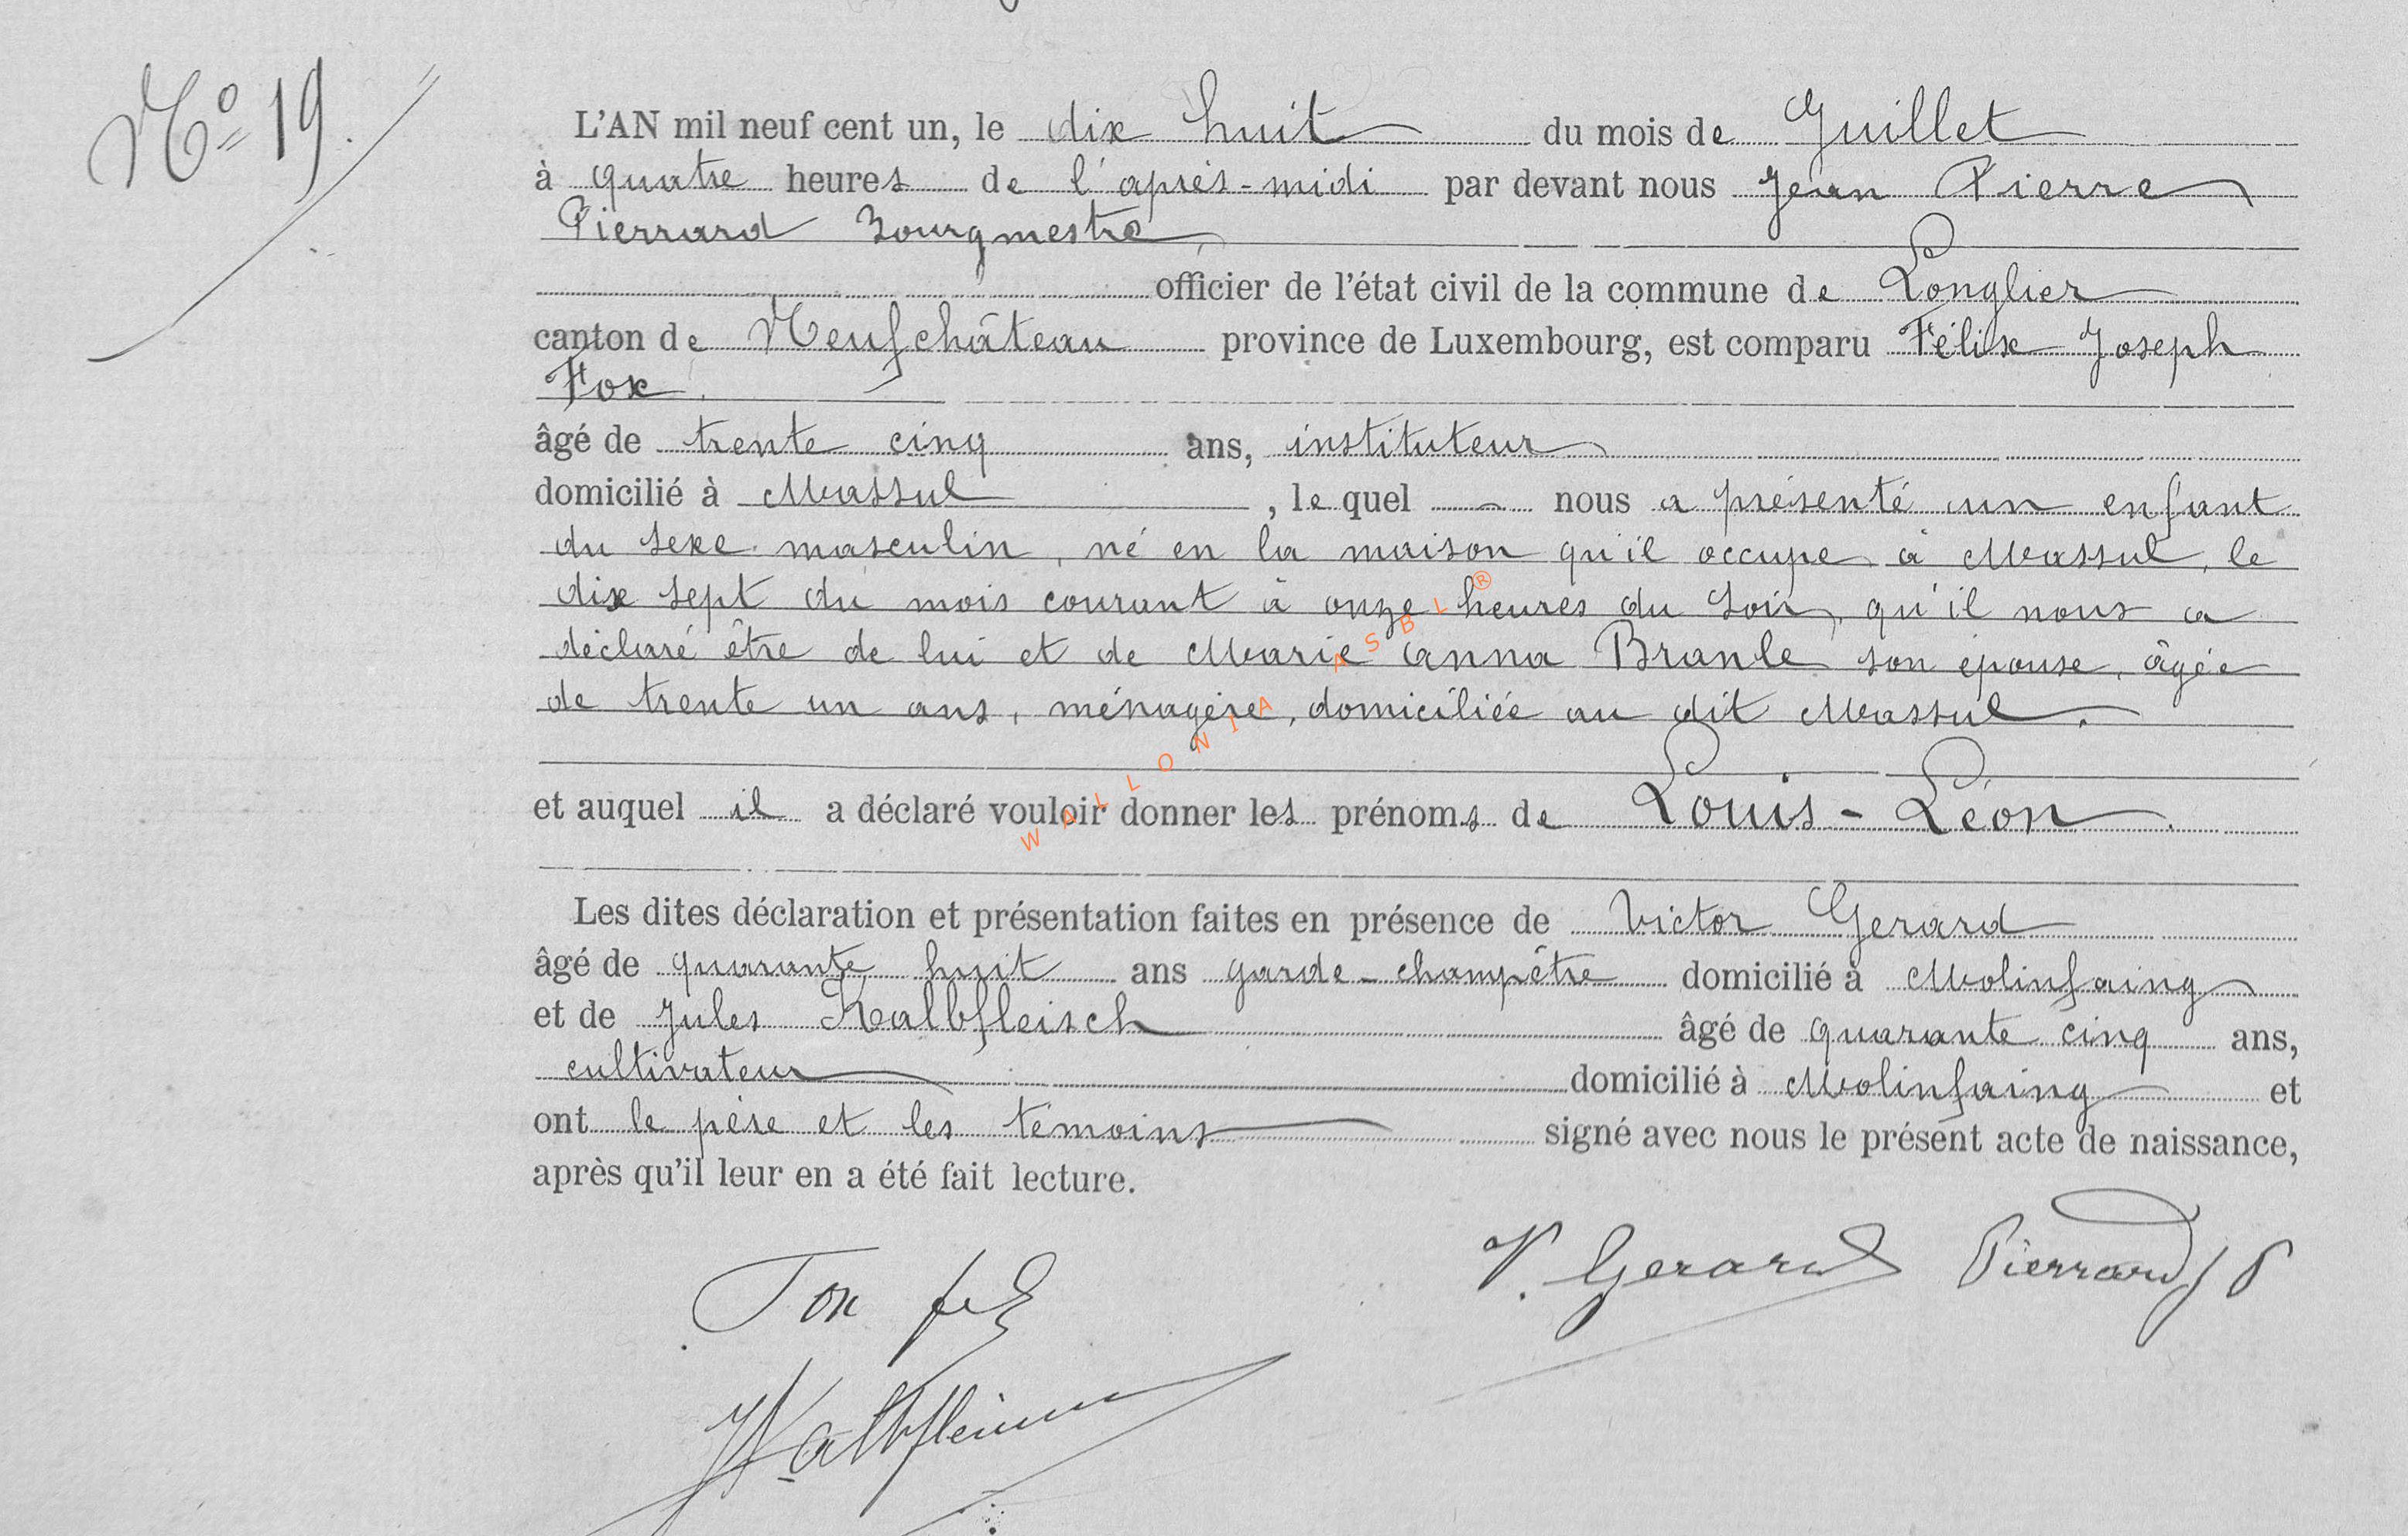 Nº 19.
L'AN mil neuf cent un, le dix huit du mois de Juillet
à quatre heures de l'après-midi par devant nous Jean Pierre
Pierrard Bourgmestre,
officier de l'état civil de la commune de Longlier
canton de Neufchâteau province de Luxembourg, est comparu Félix Joseph
Fox.
âgé de trente cinq ans, instituteur
domicilié à Massul, le quel nous a présenté un enfant
du sexe masculin, né en la maison qu'il occupe à Massul, le
dix sept du mois courant à onze heures du soir, qu'il nous a
déclaré être de lui et de Marie Anna Branle son épouse, âgée
de trente un ans, ménagère, domiciliée au dit Massul.
et auquel il a déclaré vouloir donner les prénoms de Louis-Léon.
Les dites déclaration et présentation faites en présence de Victor Gerard
âgé de quarante huit ans garde-champêtre domicilié à Molinfaing
et de Jules Kalbfleisch âgé de quarante cinq ans,
cultivateur domicilié à Molinfaing et
ont le père et les témoins signé avec nous le présent acte de naissance,
après qu'il leur en a été fait lecture.
Fox V. Gerard Pierrard
WALLONIA ASBL ®